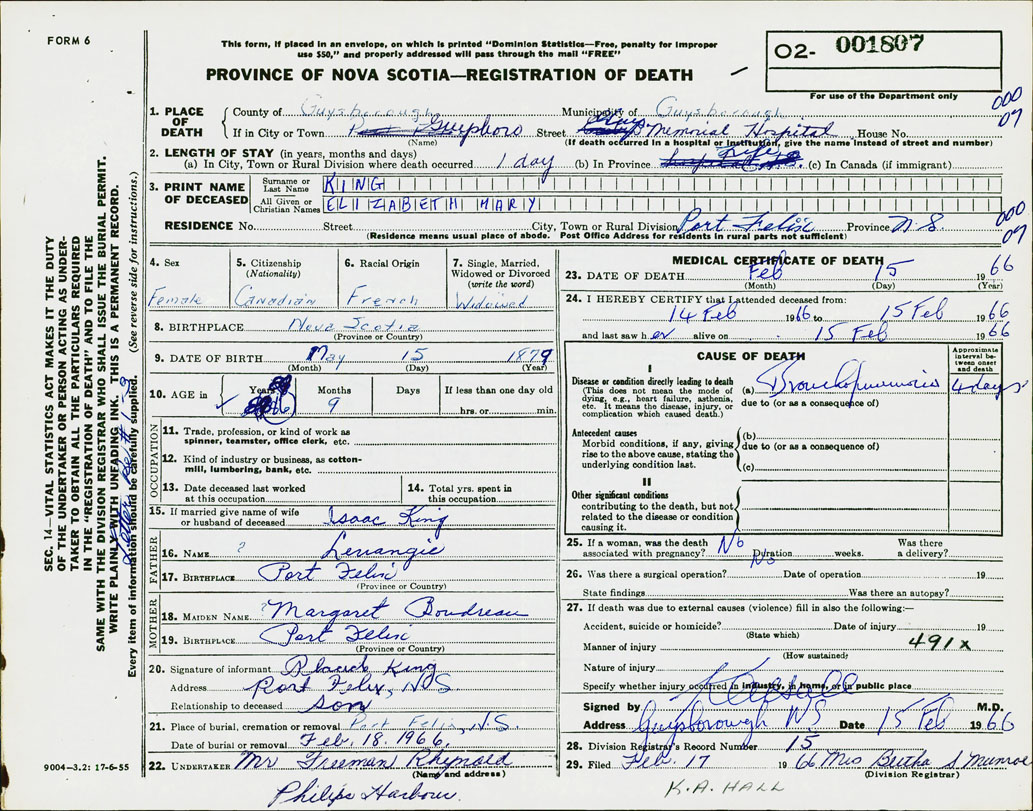 FORM 6
This form, if placed in an envelope, on which is printed "Dominion Statistics—Free, penalty for improper
use $50," and properly addressed will pass through the mail "FREE"
PROVINCE OF NOVA SCOTIA—REGISTRATION OF DEATH
02- 001807
For use of the Department only
000
07
1. PLACE OF DEATH
County of Guysborough Municipality of Guysborough
If in City or Town Guysboro Street Memorial Hospital House No.
(Name) (If death occurred in a hospital or institution, give the name instead of street and number)
2. LENGTH OF STAY (in years, months and days)
(a) In City, Town or Rural Division where death occurred 1 day (b) In Province Life (c) In Canada (if immigrant)
3. PRINT NAME OF DECEASED
Surname or Last Name KING
All Given or Christian Names ELIZABETH MARY
RESIDENCE No. Street City, Town or Rural Division Port Felix Province N.S.
(Residence means usual place of abode. Post Office Address for residents in rural parts not sufficient)
000
07
SEC. 14—VITAL STATISTICS ACT MAKES IT THE DUTY
OF THE UNDERTAKER OR PERSON ACTING AS UNDER-
TAKER TO OBTAIN ALL THE PARTICULARS REQUIRED
IN THE "REGISTRATION OF DEATH" AND TO FILE THE
SAME WITH THE DIVISION REGISTRAR WHO SHALL ISSUE THE BURIAL PERMIT.
WRITE PLAINLY WITH UNFADING INK. THIS IS A PERMANENT RECORD.
Every item of information should be carefully supplied. (See reverse side for instructions.)
4. Sex
Female
5. Citizenship
(Nationality)
Canadian
6. Racial Origin
French
7. Single, Married,
Widowed or Divorced
(write the word)
Widowed
8. BIRTHPLACE Nova Scotia
(Province or Country)
9. DATE OF BIRTH May 15 1879
(Month) (Day) (Year)
10. AGE in Years 86 Months 9 Days If less than one day old
hrs. or min.
OCCUPATION
11. Trade, profession, or kind of work as
spinner, teamster, office clerk, etc.
12. Kind of industry or business, as cotton-
mill, lumbering, bank, etc.
13. Date deceased last worked
at this occupation
14. Total yrs. spent in
this occupation
15. If married give name of wife
or husband of deceased Isaac King
FATHER
16. NAME ? Levangie
17. BIRTHPLACE Port Felix
(Province or Country)
MOTHER
18. MAIDEN NAME ? Margaret Boudreau
19. BIRTHPLACE Port Felix
(Province or Country)
20. Signature of informant Placid King
Address Port Felix, NS
Relationship to deceased son
21. Place of burial, cremation or removal Port Felix, N.S.
Date of burial or removal Feb. 18. 1966.
22. UNDERTAKER Mr Freeman Rhynold
(Name and address)
Philips Harbour.
9004-3.2: 17-6-55
MEDICAL CERTIFICATE OF DEATH
23. DATE OF DEATH Feb 15 1966
(Month) (Day) (Year)
24. I HEREBY CERTIFY that I attended deceased from:
14 Feb 1966 to 15 Feb 1966
and last saw her alive on 15 Feb 1966
CAUSE OF DEATH
Approximate
interval be-
tween onset
and death
I
Disease or condition directly leading to death
(This does not mean the mode of
dying, e.g., heart failure, asthenia,
etc. It means the disease, injury, or
complication which caused death.)
(a) Bronchopneumonia 4 days
due to (or as a consequence of)
Antecedent causes
Morbid conditions, if any, giving
rise to the above cause, stating the
underlying condition last.
(b)
due to (or as a consequence of)
(c)
II
Other significant conditions
contributing to the death, but not
related to the disease or condition
causing it.
25. If a woman, was the death
associated with pregnancy? No Duration weeks. Was there
a delivery? No
26. Was there a surgical operation? Date of operation 19
State findings Was there an autopsy?
27. If death was due to external causes (violence) fill in also the following:—
Accident, suicide or homicide? Date of injury 19
(State which)
Manner of injury 491x
(How sustained)
Nature of injury
Specify whether injury occurred in industry, in home, or in public place
Signed by K A Hall M.D.
Address Guysborough NS Date 15 Feb 1966
28. Division Registrar's Record Number 15
29. Filed Feb. 17 1966 Mrs Bertha S Munroe
(Division Registrar)
K.A. HALL